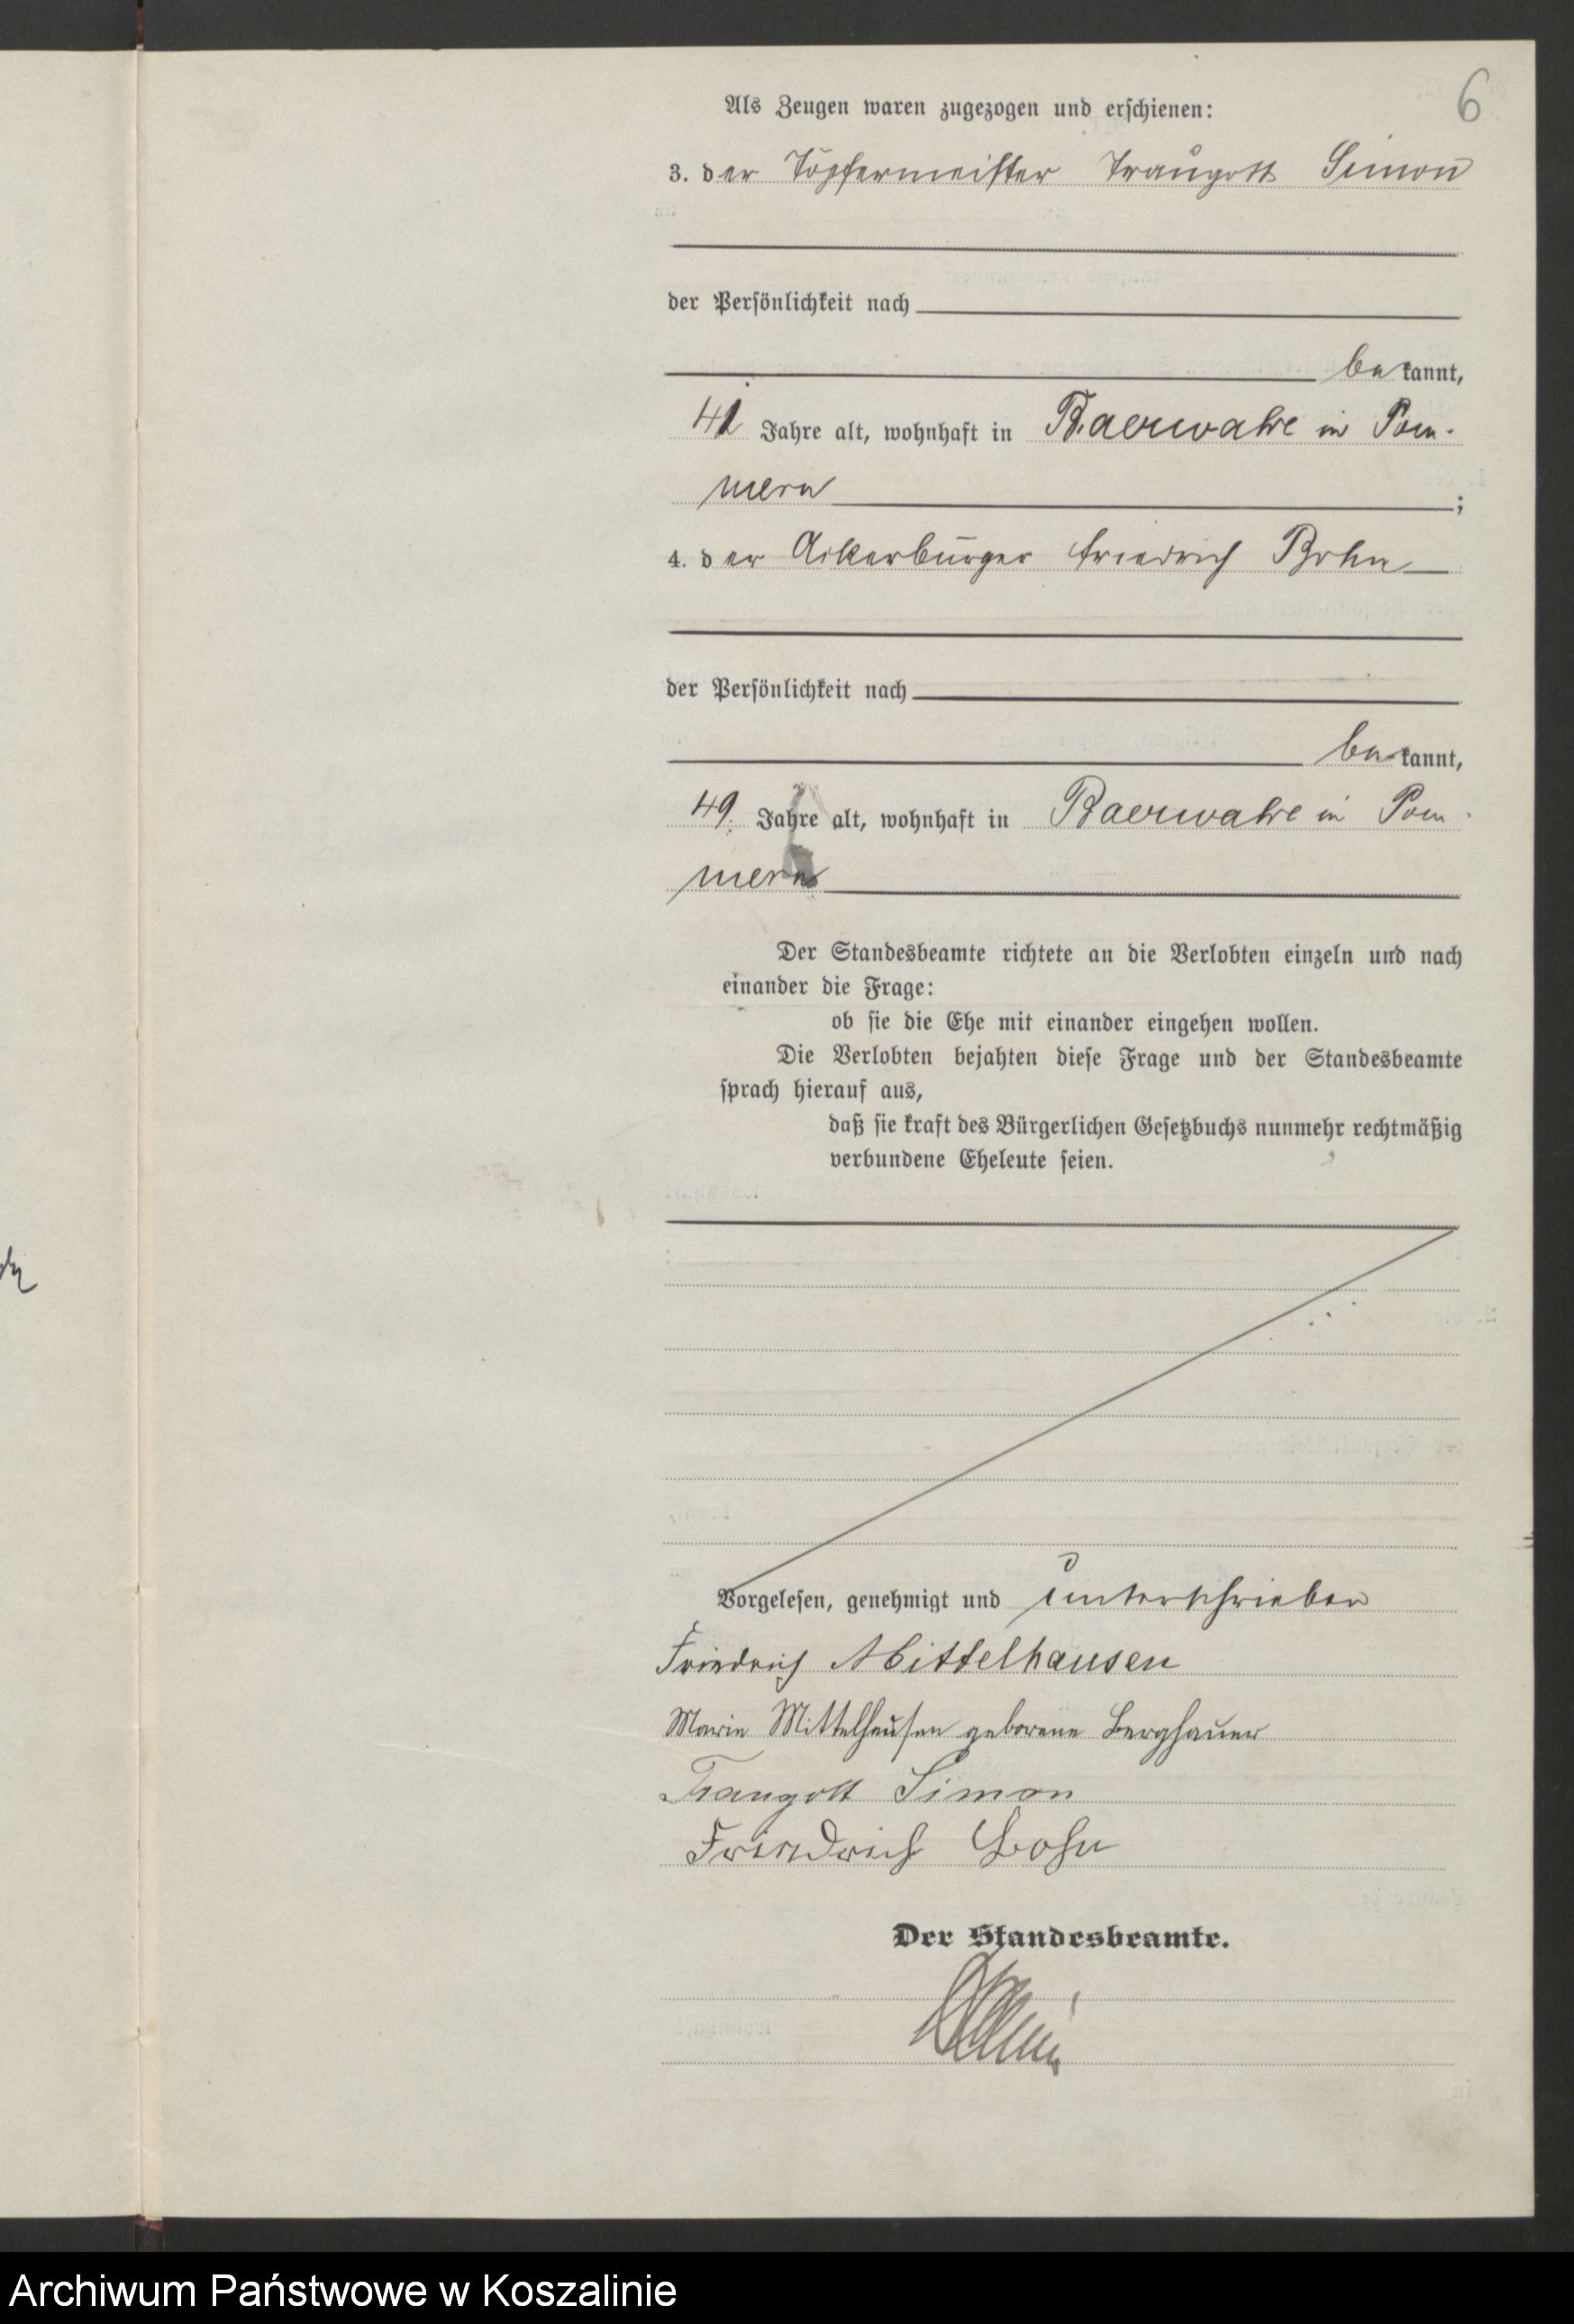 6
Als Zeugen waren zugezogen und erschienen:
3. der Töpfermeister Traugott Simon
der Persönlichkeit nach
bekannt,
41 Jahre alt, wohnhaft in Baerwalde in Pom-
mern;
4. der Ackerbürger Friedrich Bohn
der Persönlichkeit nach
bekannt,
49 Jahre alt, wohnhaft in Baerwalde in Pom-
mern
Der Standesbeamte richtete an die Verlobten einzeln und nach
einander die Frage:
ob sie die Ehe mit einander eingehen wollen.
Die Verlobten bejahten diese Frage und der Standesbeamte
sprach hierauf aus,
daß sie kraft des Bürgerlichen Gesetzbuchs nunmehr rechtmäßig
verbundene Eheleute seien.
Vorgelesen, genehmigt und unterschrieben
Friedrich Mittelhausen
Marie Mittelhausen geborene Berghauer
Traugott Simon
Friedrich Bohn
Der Standesbeamte.
Archiwum Państwowe w Koszalinie